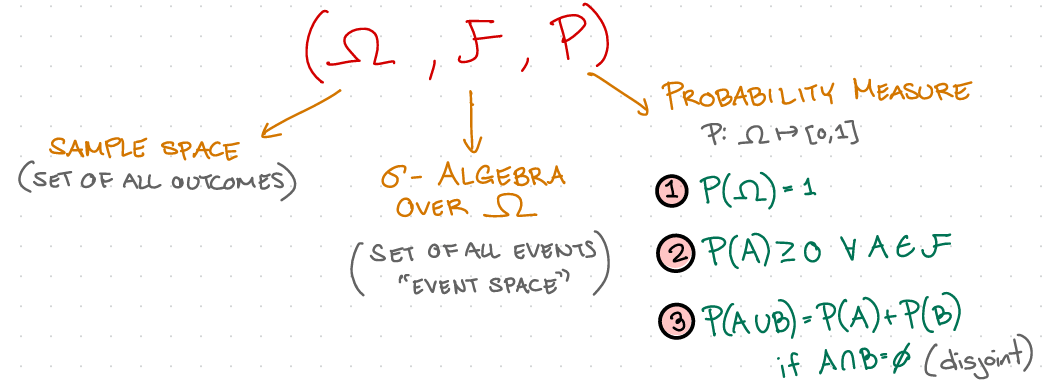 (Ω, F, P)
SAMPLE SPACE
(SET OF ALL OUTCOMES)
σ- ALGEBRA
OVER Ω
(SET OF ALL EVENTS
"EVENT SPACE")
PROBABILITY MEASURE
P: Ω ↦ [0,1]
1 P(Ω) = 1
2 P(A) ≥ 0 ∀ A ∈ F
3 P(A ∪ B) = P(A) + P(B)
if A ∩ B = ∅ (disjoint)